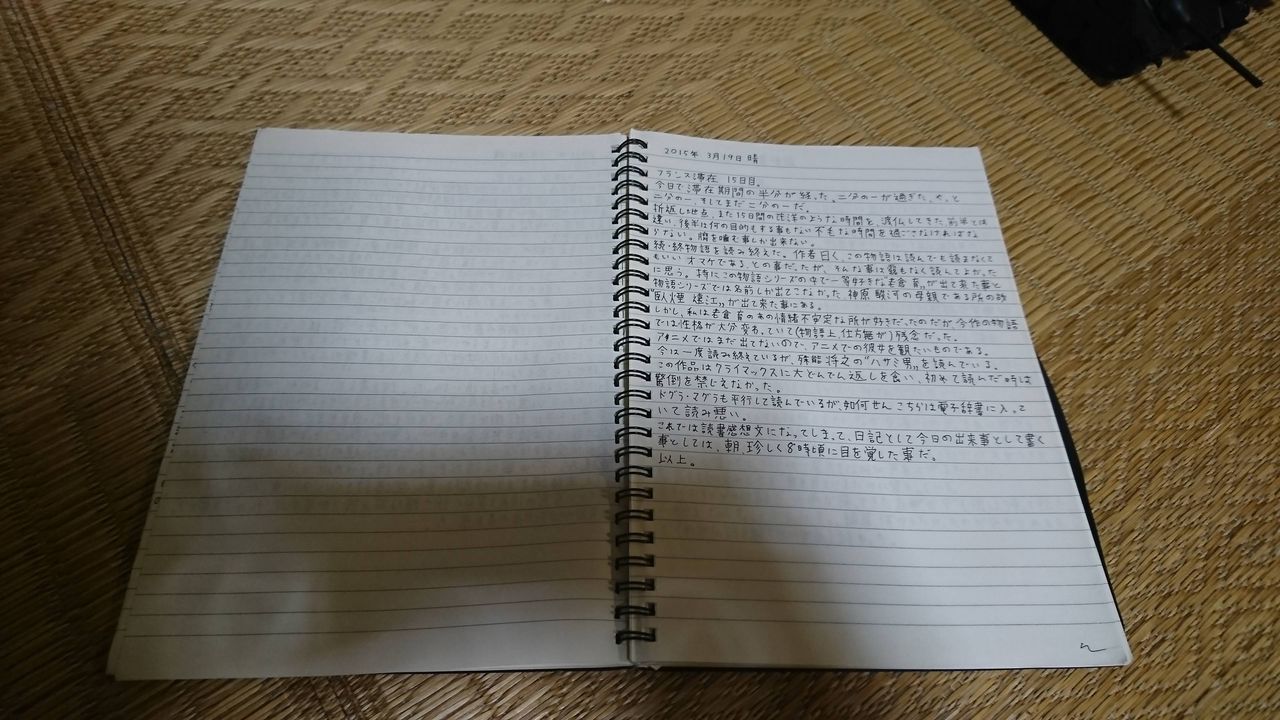 2015年 3月19日 晴
フランス滞在 15日目。
今日で滞在期間の半分が経った。二分の一が過ぎた。やっと
二分の一、そしてまだ二分の一だ。
折返し地点、また15日間の茫洋のような時間を、渡仏してきた前半とは
違い、後半は何の目的もする事もない不毛な時間を過ごさなければな
らない。臍を噛む事しか出来ない。
続・終物語を読み終えた。作者曰く、この物語は読んでも読まなくて
もいいオマケである、との事だったが、そんな事は毫もなく読んでよかった
に思う。特にこの物語シリーズの中で一等好きな老倉育が出て来た事と
物語シリーズでは名前しか出てこなかった神原駿河の母親である所の
"臥煙 遠江"が出て来た事にある。
しかし、私は老倉育のあの情緒不安定な所が好きだったのだが今作の物語
では性格が大分変わっていて(物語上、仕方無が)残念だった。
アニメではまだ出てないので、アニメでの彼女を観たいものである。
今は一度読み終えているが、殊能将之の"ハサミ男"を読んでいる。
この作品はクライマックスに大どんでん返しを食い、初めて読んだ時は
驚倒を禁じえなかった。
ドグラ・マグラも平行して読んでいるが、如何せんこちらは電子辞書に入って
いて読み悪い。
これでは読書感想文になってしまって、日記として今日の出来事として書く
事としては、朝、珍しく8時頃に目を覚した事だ。
以上。